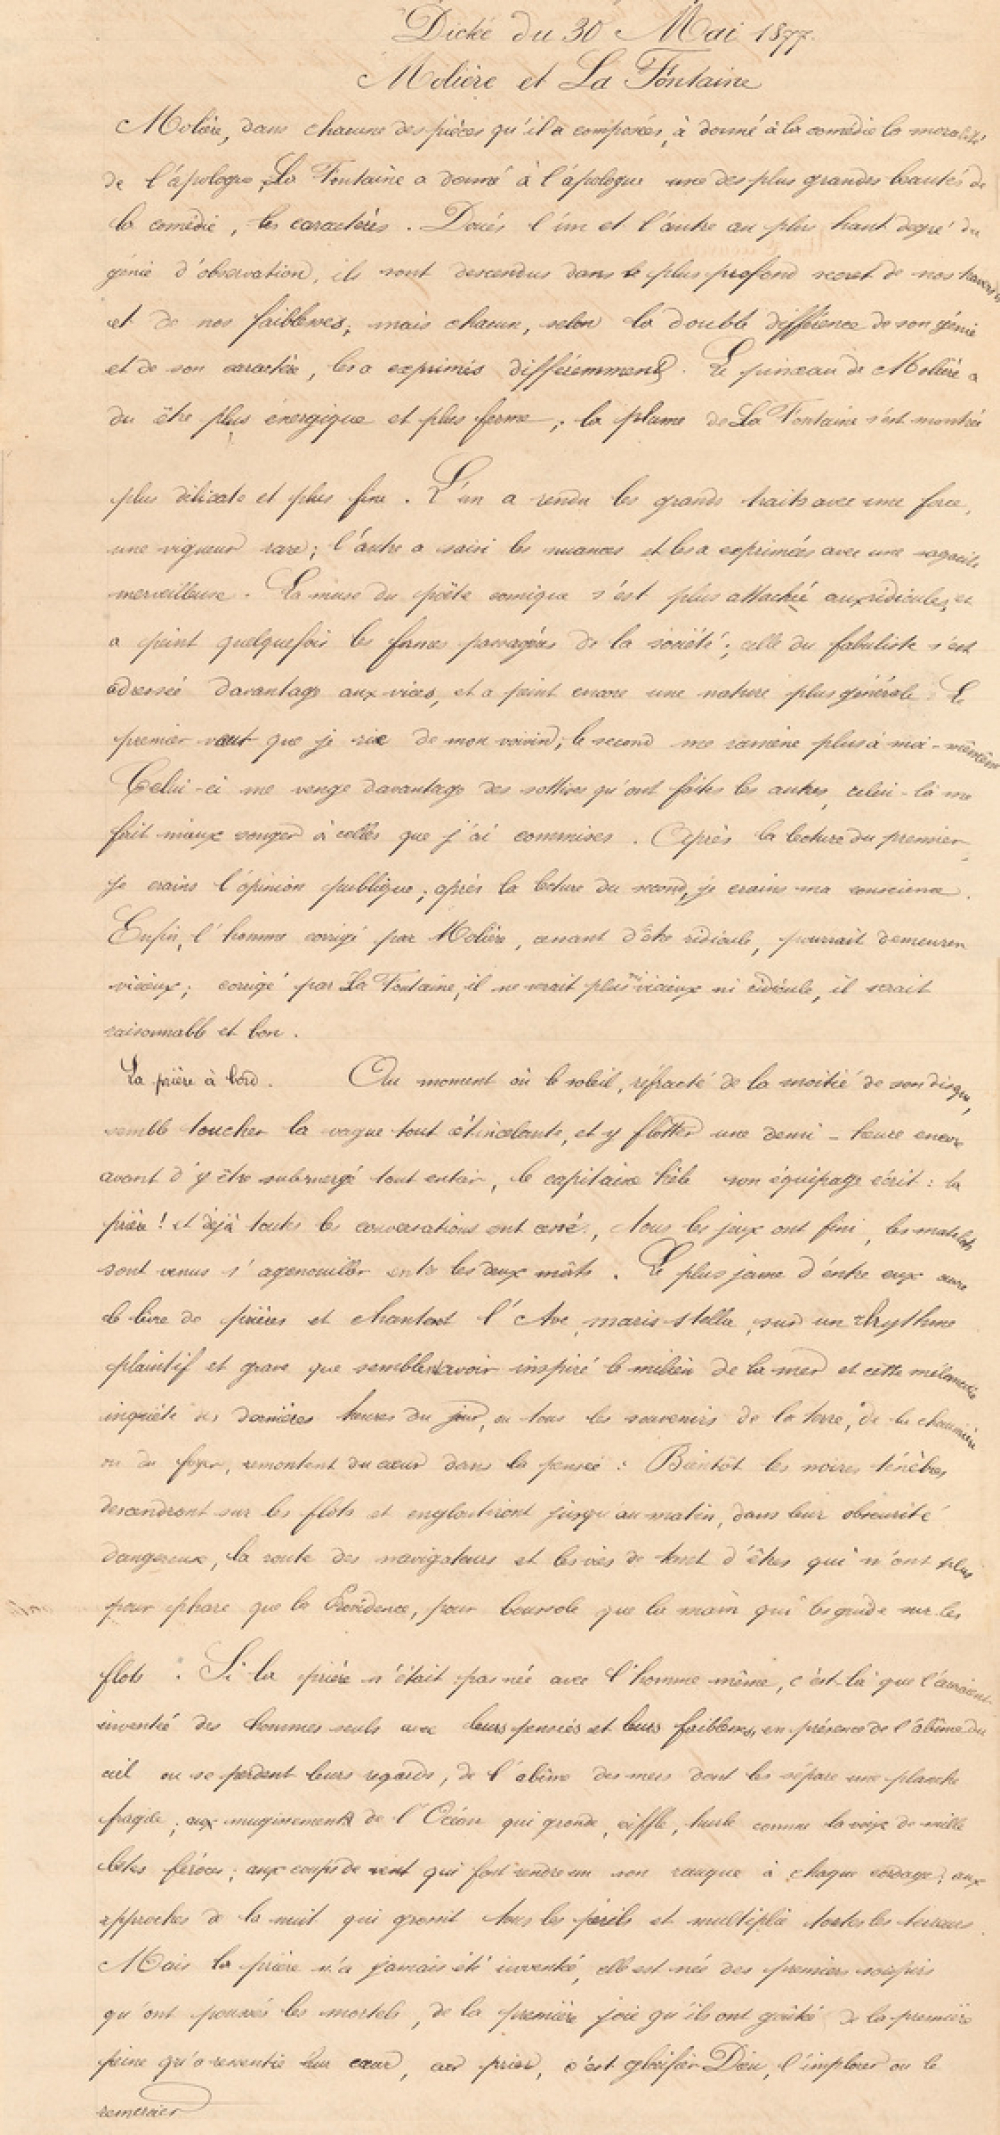 Dictée du 30 Mai 1877.
Molière et La Fontaine
Molière, dans chacune des pièces qu'il a composées, à donné à la comédie la moralité
de l'apologue, La Fontaine a donné à l'apologue une des plus grandes beautés de
la comédie, les caractères. Doués l'un et l'autre au plus haut degré du
génie d'observation, ils sont descendus dans le plus profond secret de nos travers
et de nos faiblesses; mais chacun, selon la double différence de son génie
et de son caractère, les a exprimés différemment. Le pinceau de Molière a
du être plus énergique et plus ferme; la plume de La Fontaine s'est montrée
plus délicate et plus fine. L'un a rendu les grands traits avec une force,
une vigueur rare; l'autre a saisi les nuances et les a exprimées avec une sagacité
merveilleuse. La muse du poëte comique s'est plus attachée aux ridicules, et
a peint quelquefois les formes passagères de la société; celle du fabuliste s'est
adressée davantage aux vices, et a peint encore une nature plus générale. Le
premier veut que je rie de mon voisin; le second me ramène plus à moi-même
Celui-ci me venge davantage des sottises qu'ont faites les autres, celui-là me
fait mieux songer à celles que j'ai commises. Après la lecture du premier
je crains l'opinion publique; après la lecture du second, je crains ma conscience.
Enfin, l'homme corrigé par Molière, cessant d'être ridicule, pourrait demeurer
vicieux; corrigé par La Fontaine, il ne serait plus ni vicieux ni ridicule, il serait
raisonnable et bon.
La prière à bord. Au moment où le soleil, réfracté de la moitié de son disque,
semble toucher la vague tout étincelante, et y flotter une demi-heure encore
avant d'y être submergé tout entier, le capitaine hèle son équipage écrit: la
prière! et déjà toutes les conversations ont cessé, tous les jeux ont fini, les matelots
sont venus s'agenouiller entre les deux mâts. Le plus jeune d'entre eux ouvre
le livre de prières et chantent l'Ave, maris stella, sur un rhythme
plaintif et grave que semblent avoir inspiré le milieu de la mer et cette mélancolie
inquiète des dernières heures du jour, ou tous les souvenirs de la terre, de la chaumière
ou du foyer, remontent du cœur dans la pensée: Bientôt les noires ténèbres
descendront sur les flots et engloutiront jusqu'au matin, dans leur obscurité
dangereuse, la route des navigateurs et les vies de tant d'êtres qui n'ont plus
pour phare que la Providence, pour boussole que la main qui les guide sur les
flots. Si la prière n'était pas née avec l'homme même, c'est là que l'auraient
inventée des hommes seuls avec leurs pensées et leurs faiblesses, en présence de l'abîme du
ciel ou se perdent leurs regards, de l'abîme des mers dont les sépare une planche
fragile; aux mugissements de l'Océan qui gronde, siffle, hurle comme la voix de mille
bêtes féroces; aux coups de vent qui font rendre un son rauque à chaque cordage; aux
approches de la nuit qui grossit tous les périls et multiplie toutes les terreurs.
Mais la prière n'a jamais été inventée, elle est née des premiers soupirs
qu'ont poussés les mortels, de la première joie qu'ils ont goûtée de la première
peine qu'a ressentie leur cœur, car prier, c'est glorifier Dieu, l'implorer ou le
remercier